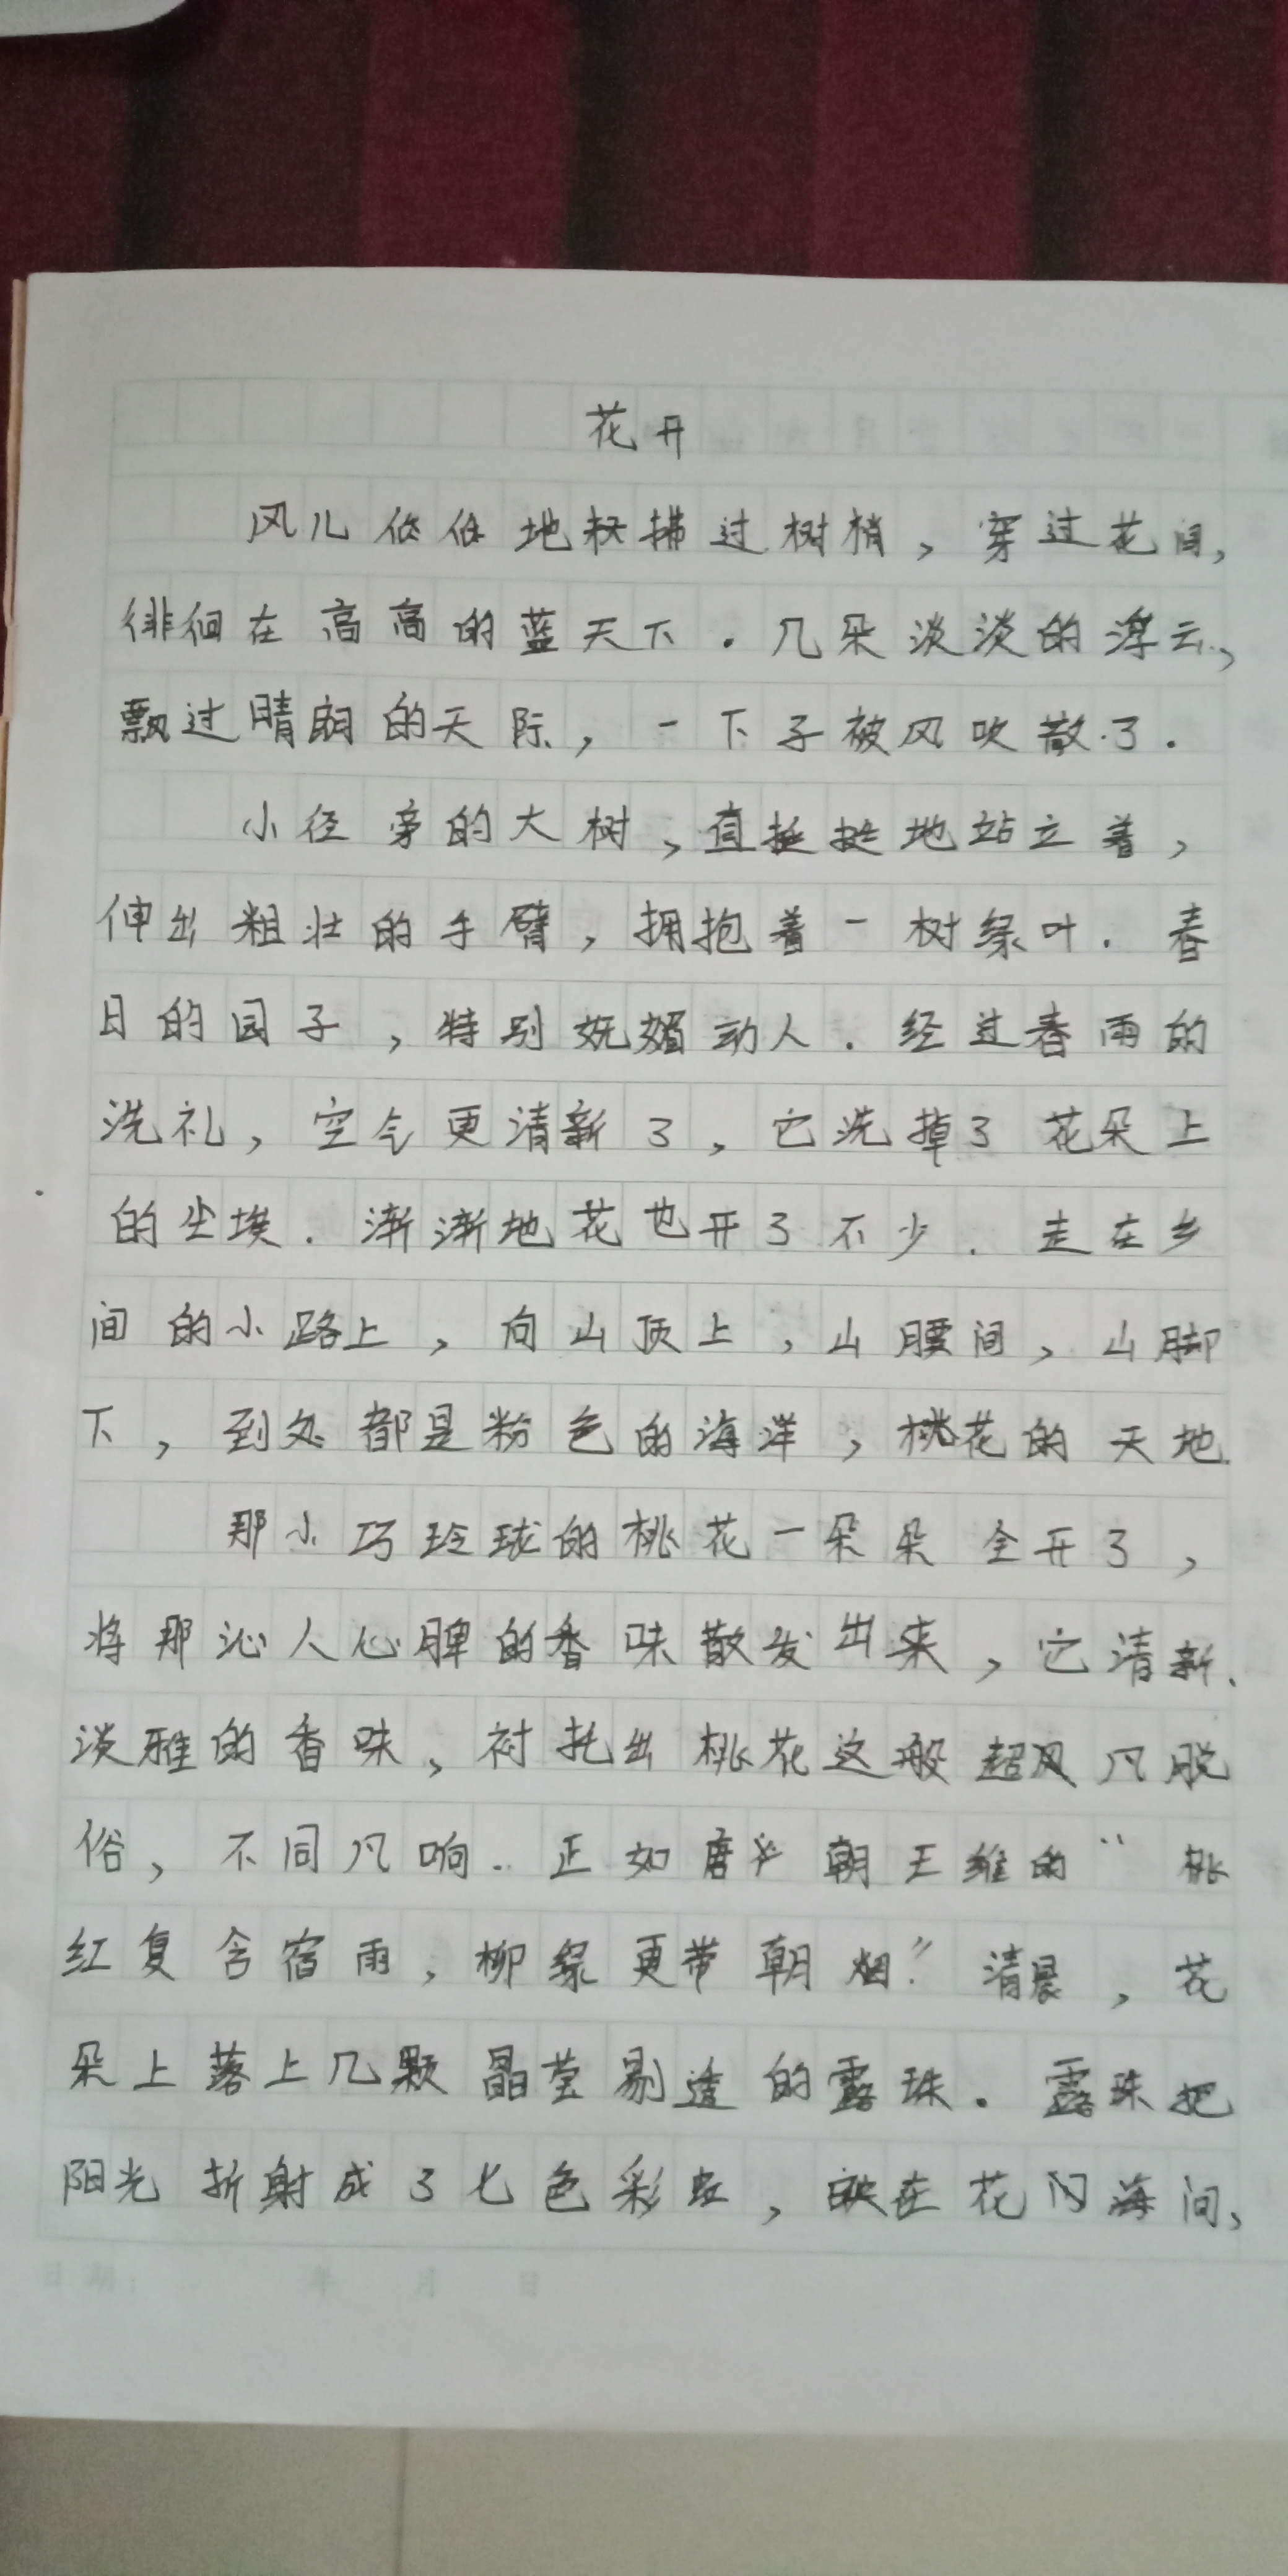 花开
风儿低低地轻拂过树梢，穿过花间，
徘徊在高高的蓝天下．几朵淡淡的浮云，
飘过晴朗的天际，一下子被风吹散了．
小径旁的大树，直挺挺地站立着，
伸出粗壮的手臂，拥抱着一树绿叶．春
日的园子，特别妩媚动人．经过春雨的
洗礼，空气更清新了，它洗掉了花朵上
的尘埃．渐渐地花也开了不少．走在乡
间的小路上，向山顶上，山腰间，山脚
下，到处都是粉色的海洋，桃花的天地．
那小巧玲珑的桃花一朵朵全开了，
将那沁人心脾的香味散发出来，它清新、
淡雅的香味，衬托出桃花这般超凡脱
俗，不同凡响．正如唐朝王维的“桃
红复含宿雨，柳绿更带朝烟”．清晨，花
朵上落上几颗晶莹剔透的露珠．露珠把
阳光折射成了七色彩虹，映在花海间，
日期： 年 月 日